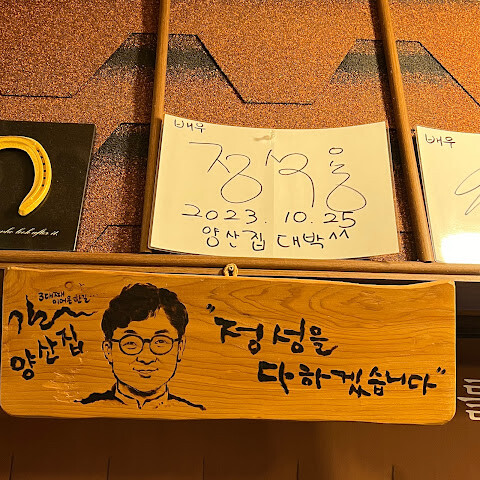 배우
정석용
2023. 10. 25
양산집 대박^^
배우
3대째
이어온 한길
양산집
"정성을
다하겠습니다"